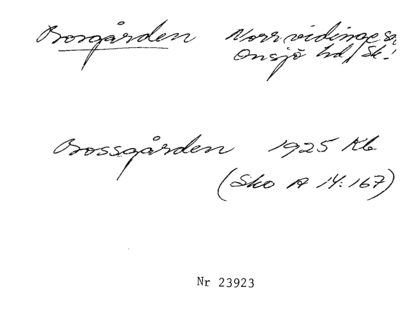 Borgården Norrvidinge sn
Onsjö hd, Sk.
Bossgården 1925 Kb
(Sko A 14:167)
Nr 23923